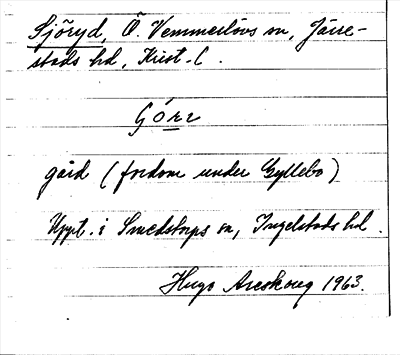 Sjöryd, Ö. Vemmerlövs sn, Järre-
stads hd, Krist. l.
gård (fordom under Gyllebo)
Uppt. i Smedstorps sn, Ingelstads hd.
Hugo Areskoug 1963.